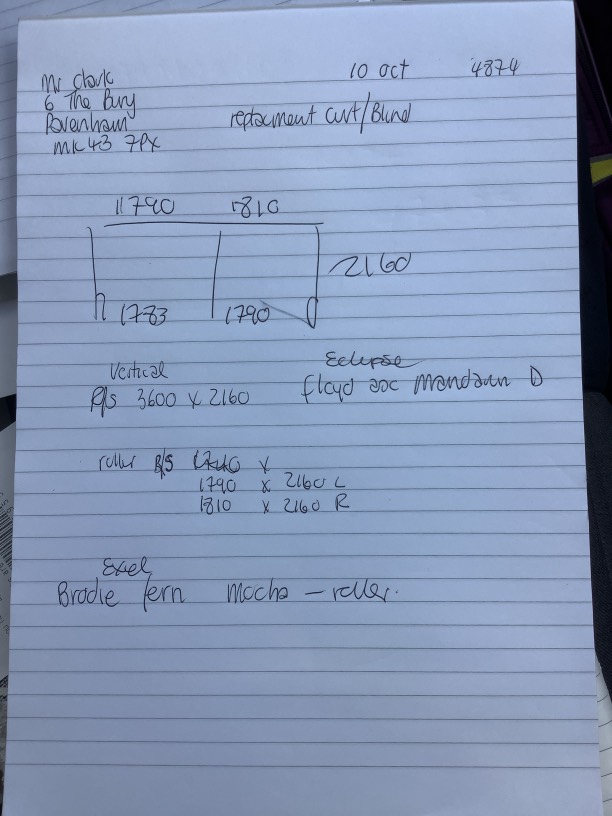 Mr Clark 10 oct 4874
6 The Bury
Pavenham replacment curt/Blind
MK43 7PX
1790 1810
2160
1783 1790
Vertical Eclipse
R/S 3600 x 2160 floyd D
roller R/S x
1790 x 2160 L
1810 x 2160 R
Excel
Brodie fern mocha - roller.